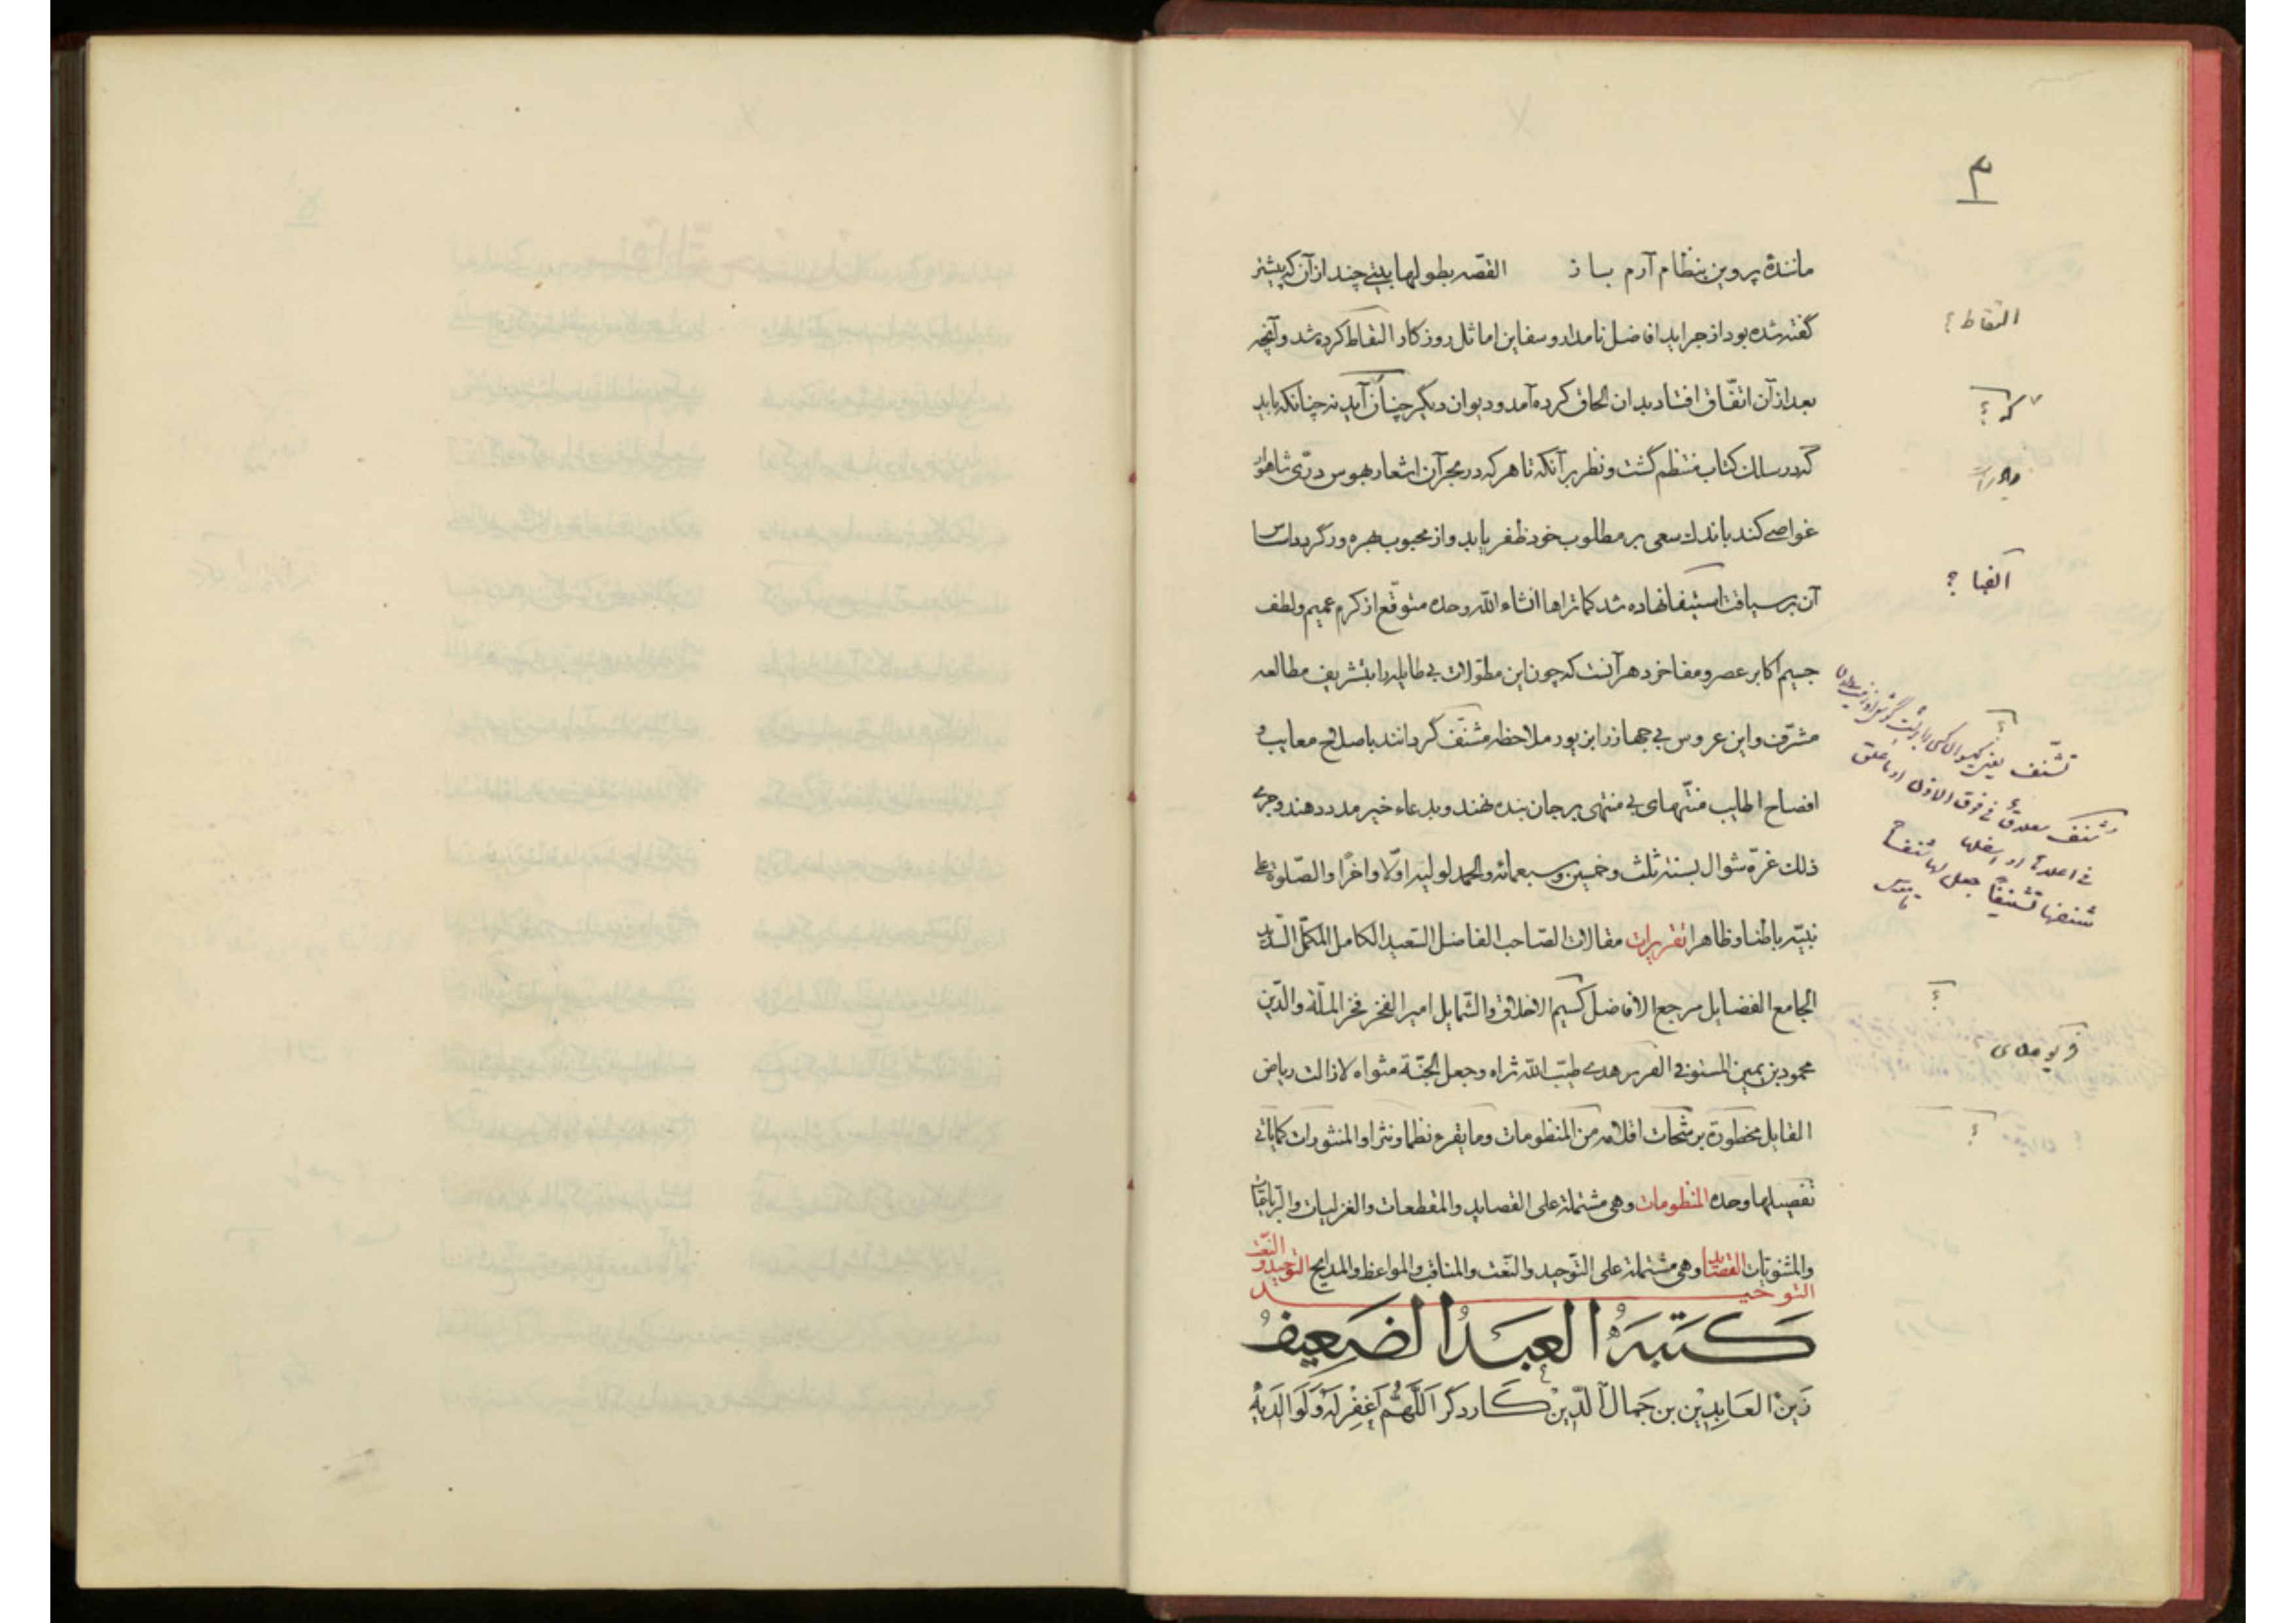 ۳
مانندهٔ پروین بنظام آرم باز القصّه بطولها بیتی چند از آن که پیشتر
گفته شده بود از جراید افاضل نامدار و سفاین اماثل روزکار التقاط کرده شد و آنچه
بعد از آن اتّفاق افتاد بدان الحاق کرده آمد و دیوان دیگر چنان آید نه چنانکه باید
که در سلک کتاب منتظم گشت و نظر بر آنکه تا هر که در بحر آن اشعار بهوس درّی شاهوار
غواصی کند باندک سعی بر مطلوب خود ظفر یابد و از محبوب بهره ور گردد اساس
آن بر سیاقت استیفا نهاده شد کما تراها انشاء الله وحده متوقّع از کرم عمیم و لطف
جسیم اکابر عصر و مفاخر دهر آنست که چون این مطوّلات بی طایل را بتشریف مطالعه
مشرّف و این عروس بی جهاز را بزیور ملاحظه مشنّف گردانند باصلاح معایب و
افضاح اطایب منّتهای بی منتهی بر جان بنده نهند و بدعاء خیر مدد دهند و جری
ذلک غرّه شوال لسنه ثلث و خمسین و سبعمائه والحمد لولیه اوّلا و اخرًا والصّلوة علی
نبیّه باطنا و ظاهرا تقریرات مقالات الصّاحب الفاضل السّعید الکامل المکمّل السّدید
الجامع الفضایل مرجع الافاضل کسیم الاخلاق والشّمایل امیر الفخر فخر الملّة والدّین
محمود بن یمین المستوفی الفریومدی طیّب الله ثراه وجعل الجنّة مثواه لازالت ریاض
القابل مخطورة برشحات اقلامه من المنظومات وما یقرع نظما و نثرا والمنثورات کمایاتی
تفصیلها وحده المنظومات وهی مشتملة علی القصاید والمقطعات والغزلیات والرّباعیّات
والمثنویات القصاید وهی مشتملة علی التّوحید والنّعت والمناقب والمواعظ والمدایح التوحید و النّعت
التوحید
کَتَبَهُ العَبدُ الضَعِیفُ
زَینُ العَابِدِیْن بن جَمال الدّین کاردکر اَللّهُمَّ اغفِرْلَهُ وَلَوالدَیهُ
التقاط ؟
که ؟
الفبا ؟
فریومدی